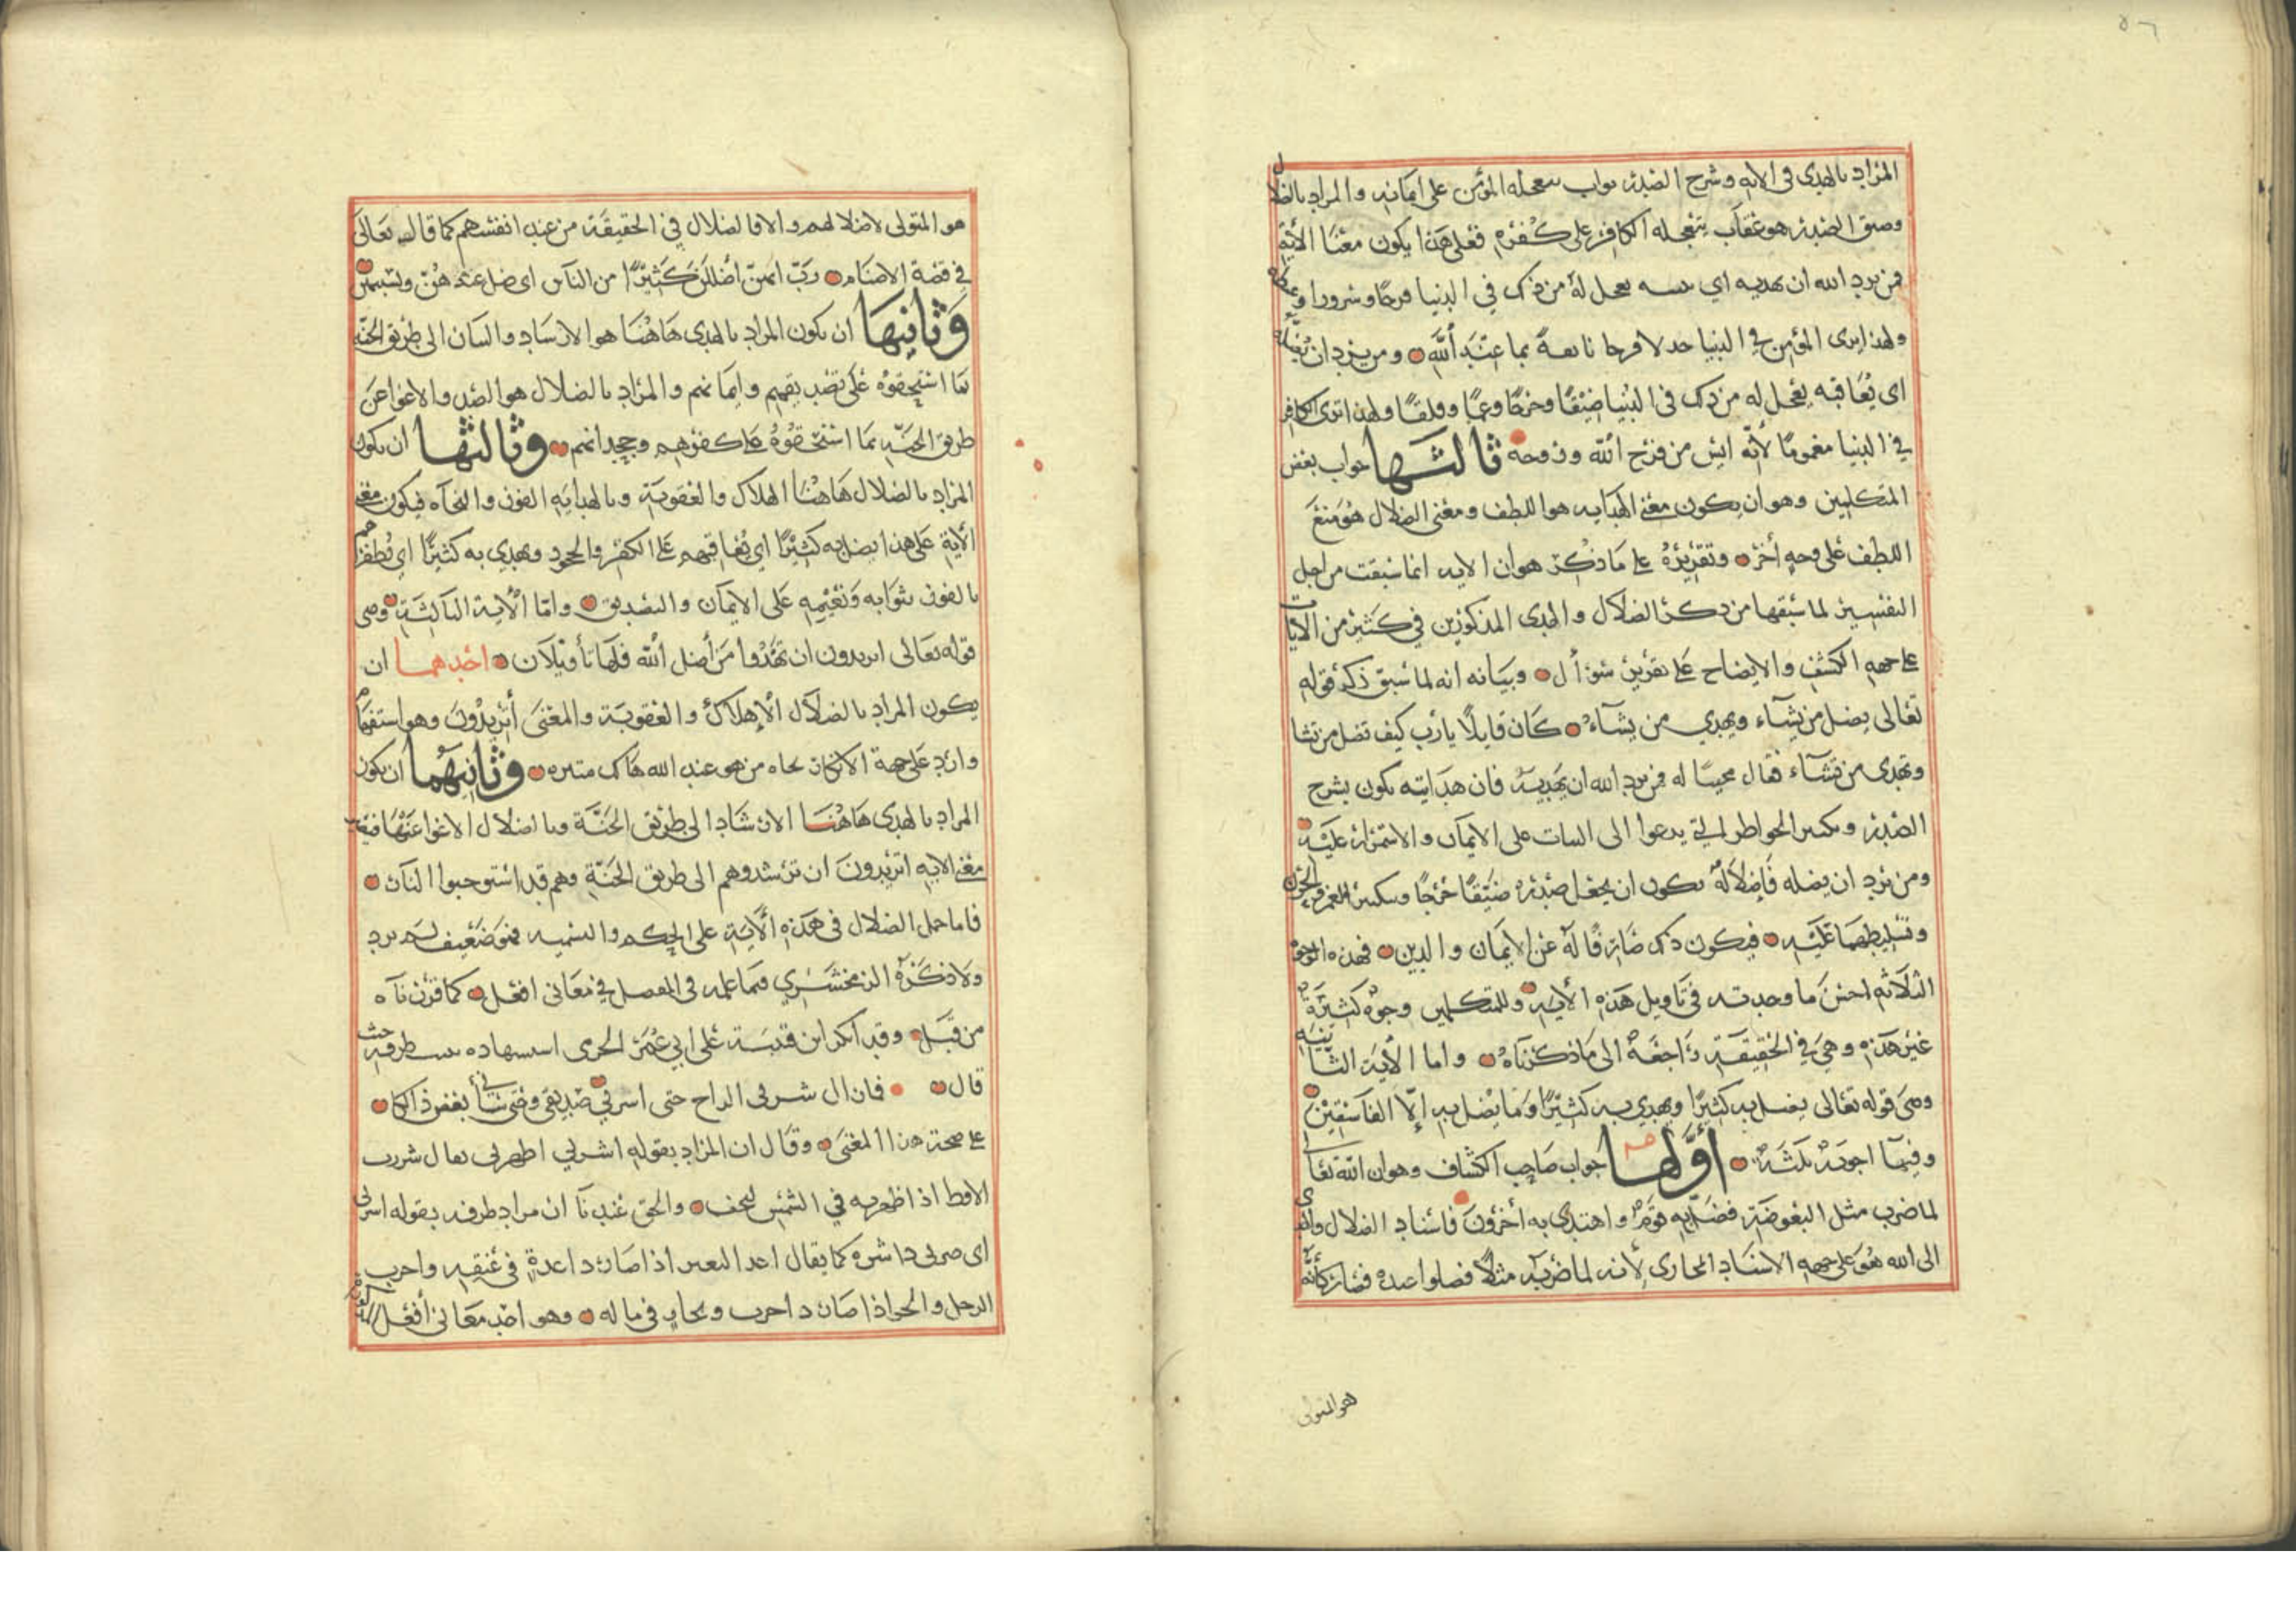 ٥٦
المراد بالهدى في الايه وشرح الصدر ثواب يتعجله المؤمن على ايمانه والمراد بالضلال
وضيق الصدر هو عقاب يتعجله الكافر على كفره فعلى هذا يكون معنا الأية
فمن يرد الله ان يهديه اي يثيبه يعجل له من ذلك في الدنيا فرحا وسرورا وعطاء
ولهذا يرى المؤمن في الدنيا جذلا فرحا ثابعة بما عند الله ومن يرد ان يضله
اى يعاقبه يعجل له من ذلك في الدنيا ضيقا وحرجا وغما وقلقا ولهذا ترى الكافر
في الدنيا مغموما لأنه ايس من فرح الله وروحه ثالثها جواب بعض
المتكلمين وهو ان يكون معنى الهدايه هو اللطف ومعنى الضلال هو منع
اللطف على وجه أخر وتقريره على ما ذكر هو ان الايه انما سيقت من اجل
التفسير لما سبقها من ذكر الضلال والهدى المذكورين في كثير من الأيات
على جهه الكشف والايضاح على تقرير سؤال وبيانه انه لما سبق ذكر قوله
تعالى يضل من يشآء ويهدي من يشآء كان قايلا يا رب كيف تضل من تشا
وتهدى من تشآء فقال مجيبا له فمن يرد الله ان يهديه فان هدايته تكون بشرح
الصدر وتكثير الخواطر التي يدعوا الى الثبات على الايمان والاستمرار عليه
ومن يرد ان يضله فإضلاله يكون ان يجعل صدره ضيقا حرجا وتكثير الغم والحزن
وتسليطهما عليه فيكون ذلك صارفا له عن الايمان والدين فهذه الوجوه
الثلاثه احسن ما وجدته في تاويل هذه الأيه وللمتكلمين وجوه كثيرة
غير هذه وهي في الحقيقة راجعة الى ما ذكرناه واما الأية الثانيه
وهى قوله تعالى يضل به كثيرا ويهدي به كثيرا وما يضل به إلا الفاسقين
وفيها اجوبة ثلثة أولها جواب صاحب الكشاف وهو ان الله تعالى
لما ضرب مثل البعوضة فضل به قوم واهتدى به أخرون فاسناد الضلال والهدى
الى الله هو على جهه الاسناد المجازى لأنه لما ضرب به مثلا فضلوا عنده فصار كأنه
هو المتولى
هو المتولى لاضلالهم والا فالضلال في الحقيقة من عند انفسهم كما قال تعالى
في قصة الاصنام رب انهن أضللن كثيرا من الناس اى ضل عندهن وبسببهن
وثانيها ان يكون المراد بالهدى هاهنا هو الارشاد والبيان الى طريق الجنه
بما استحقوه على تصديقهم وايمانهم والمراد بالضلال هو الصد والاغوا عن
طريق الجنه بما استحقوه على كفرهم وجحدانهم وثالثها ان يكون
المراد بالضلال هاهنا الهلاك والعقوبة وبالهدايه الفوز والنجاه فيكون معنى
الأية على هذا يضل به كثيرا اي يعاقبهم على الكفر والجحود ويهدي به كثيرا اي يظفرهم
بالفوز بثوابه ونعيمه على الايمان والتصديق واما الأية الثالثة وهى
قوله تعالى اتريدون ان تهدوا من أضل الله فلها تأويلان احدهما ان
يكون المراد بالضلال الإهلاك والعقوبة والمعنى أتريدون وهو استفهام
وارد على جهة الانكار نجاه من هو عند الله هالك متبره وثانيهما ان يكون
المراد بالهدى هاهنا الارشاد الى طريق الجنة وبالضلال الاغوا عنها فيكون
معنى الايه اتريدون ان ترشدوهم الى طريق الجنة وهم قد استوجبوا النار
فاما حمل الضلال في هذه الأية على الحكم والتسميه فهو ضعيف لم يرد
ولا ذكره الزمخشري فيما علمه في المفصل في معانى افعل كما قررناه
من قبل وقد انكر ابن قتيبة على ابي عمر الجرمى استشهاده ببيت طرفه حيث
قال فان ال شربى الراح حتى اشرني صديقى وحتى سائني بعض ذالكا
على صحة هذا المعنى وقال ان المراد بقوله اشرني اظهرني يقال شررت
الاقط اذا اظهرته في الشمس ليجف والحق عندنا ان مراد طرفه بقوله اشرنى
اى صرنى ذا شره كما يقال اغد البعير اذا صار ذا غدة في عنقه واجرب
الرجل وانحز اذا صار ذا جرب ونحاز في ماله وهو احد معانى أفعل